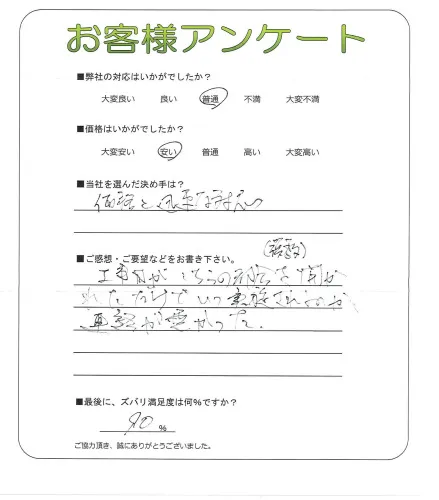 お客様アンケート
■弊社の対応はいかがでしたか？
大変良い 良い 普通 不満 大変不満
■価格はいかがでしたか？
大変安い 安い 普通 高い 大変高い
■当社を選んだ決め手は？
価格と迅速な対応
■ご感想・ご要望などをお書き下さい。
工事日がこちらの都合を聞か
れただけでいつ実施されるのか
連絡が悪かった。
■最後に、ズバリ満足度は何％ですか？
90 %
ご協力頂き、誠にありがとうございました。